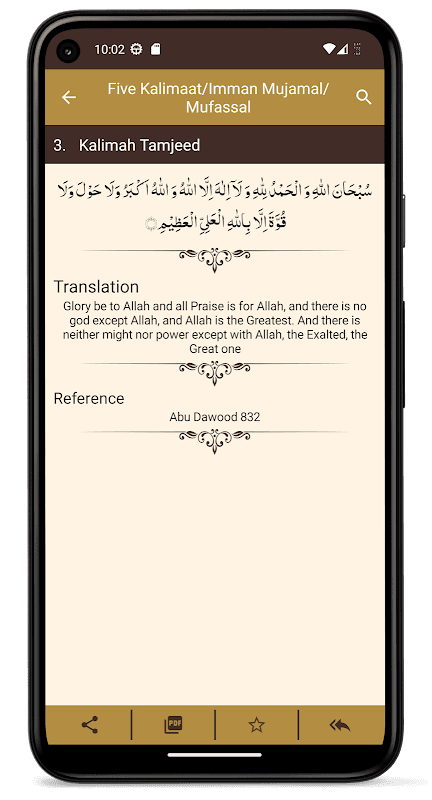 10:02
Five Kalimaat/Imman Mujamal/
Mufassal
3. Kalimah Tamjeed
سُبْحَانَ اللهِ وَ الْحَمْدُ لِلّٰهِ وَ لَآ اِلٰهَ اِلَّا اللهُ وَ اللهُ اَكْبَرُ وَلَا حَوْلَ وَلَا
قُوَّةَ اِلَّا بِاللهِ الْعَلِيِّ الْعَظِيْمِ
Translation
Glory be to Allah and all Praise is for Allah, and there is no
god except Allah, and Allah is the Greatest. And there is
neither might nor power except with Allah, the Exalted, the
Great one
Reference
Abu Dawood 832
PDF